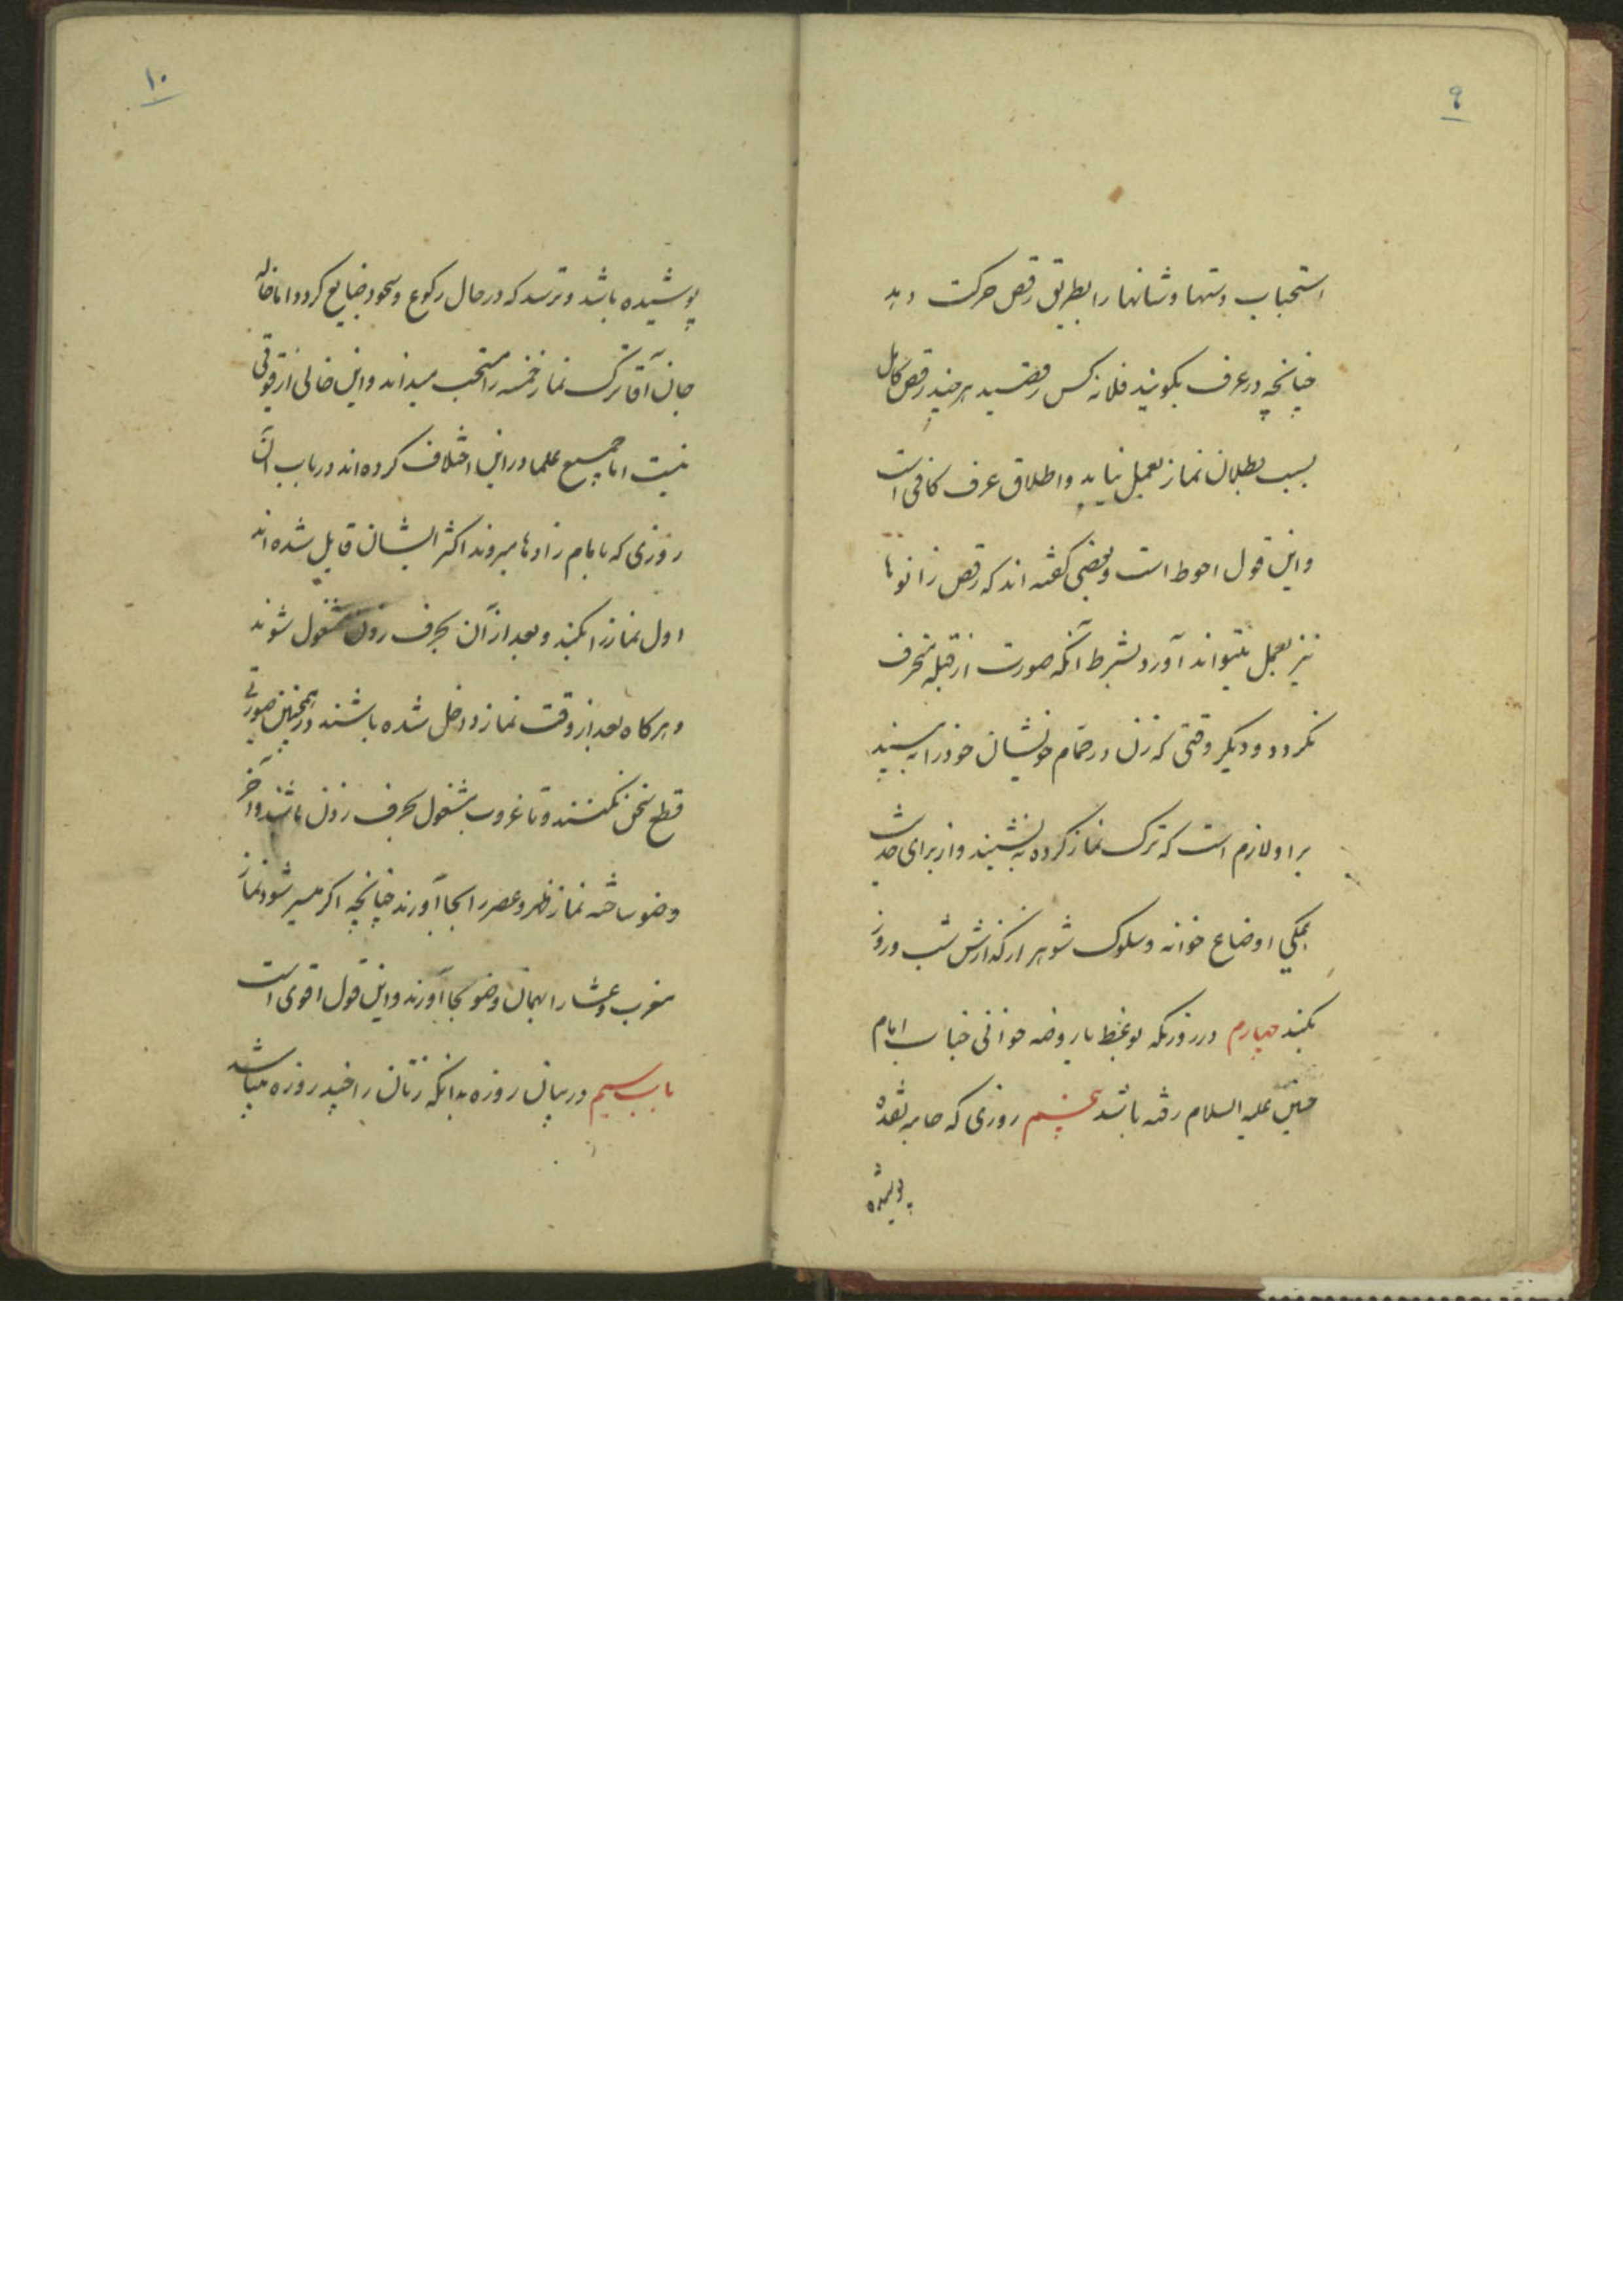 ۹
استحباب دستها و شانها را بطریق رقص حرکت دهد
چنانچه در عرف بگویند فلانه کس رقصید هر چند رقص کامل
بسبب بطلان نماز بعمل نیاید و اطلاق عرف کافی است
و این قول احوط است و بعضی گفته اند که رقص زانوها
نیز بعمل میتواند آورد بشرط آنکه صورت از قبله منحرف
نگردد و دیگر وقتی که زن در حمام خویشان خود را به بیند
بر او لازم است که ترک نماز کرده به نشیند و از برای حدیث
همگی اوضاع خوانه و سلوک شوهر از گذارش شب و روز
بکنند چهارم در روزیکه بوعظ یا روضه خوانی جناب امام
حسین علیه السلام رفته باشد پنجم روزی که جامه نقده
پوشیده
۱۰
پوشیده باشد و ترسد که در حال رکوع و سجود ضایع گردد اما خاله
جان آقا ترک نماز خمسه را مستحب میداند و این خالی از قوتی
نیست اما جمیع علما در این اختلاف کرده اند در باب آن
روزی که بامام زاد ها میروند اکثر ایشان قایل شده اند
اول نماز را بکنند و بعد از آن بحرف زدن مشغول شوند
و هر کاه بعد از وقت نماز داخل شده باشند در همچنین صورتی
قطع سخن نکنند و تا غروب مشغول بحرف زدن باشند و آخر
وضو ساخته نماز ظهر و عصر را بجا آورند چنانچه اگر میسر شود نماز
مغرب و عشا را بهمان وضو بجا آورند و این قول اقوی است
باب سیم در بیان روزه بدانکه زنان را چند روزه میباشد